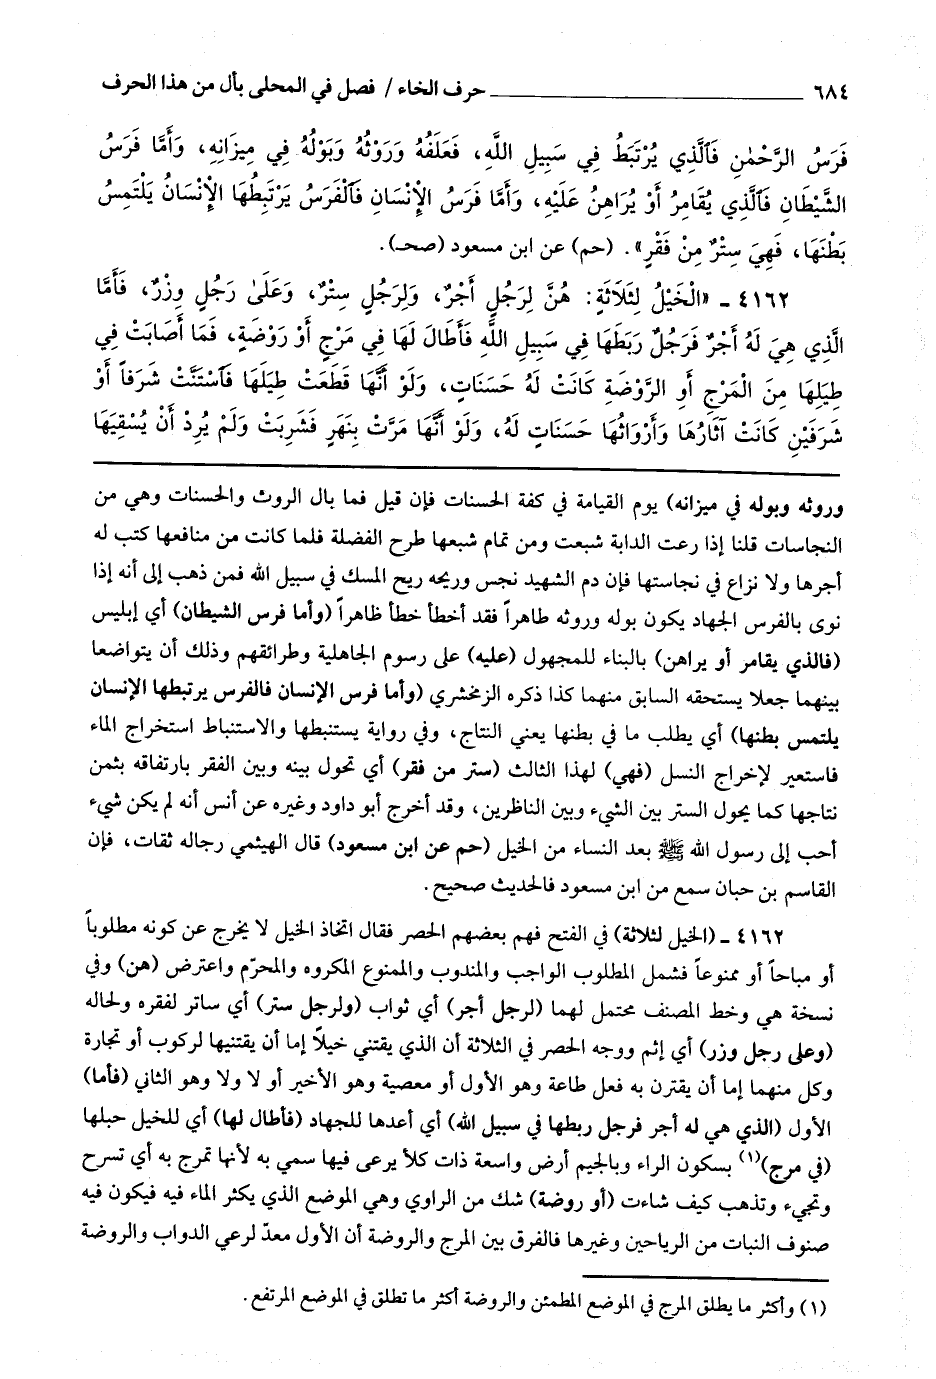 ٦٨٤ ــــــــــــــــــــ حرف الخاء / فصل في المحلى بأل من هذا الحرف
فَرَسُ الرَّحْمٰنِ فَٱلَّذِي يُرْتَبَطُ فِي سَبِيلِ اللَّهِ، فَعَلَفُهُ وَرَوْثُهُ وَبَوْلُهُ فِي مِيزَانِهِ، وَأَمَّا فَرَسُ
الشَّيْطَانِ فَٱلَّذِي يُقَامِرُ أَوْ يُرَاهِنُ عَلَيْهِ، وَأَمَّا فَرَسُ الْإِنْسَانِ فَٱلْفَرَسُ يَرْتَبِطُهَا الْإِنْسَانُ يَلْتَمِسُ
بَطْنَهَا، فَهِيَ سِتْرٌ مِنْ فَقْرٍ». (حم) عن ابن مسعود (صحـ).
٤١٦٢ ـ «الْخَيْلُ لِثَلَاثَةٍ: هُنَّ لِرَجُلٍ أَجْرٌ، وَلِرَجُلٍ سِتْرٌ، وَعَلَىٰ رَجُلٍ وِزْرٌ، فَأَمَّا
الَّذِي هِيَ لَهُ أَجْرٌ فَرَجُلٌ رَبَطَهَا فِي سَبِيلِ اللَّهِ فَأَطَالَ لَهَا فِي مَرْجٍ أَوْ رَوْضَةٍ، فَمَا أَصَابَتْ فِي
طِيَلِهَا مِنَ الْمَرْجِ أَوِ الرَّوْضَةِ كَانَتْ لَهُ حَسَنَاتٍ، وَلَوْ أَنَّهَا قَطَعَتْ طِيَلَهَا فَٱسْتَنَّتْ شَرَفاً أَوْ
شَرَفَيْنِ كَانَتْ آثَارُهَا وَأَرْوَاثُهَا حَسَنَاتٍ لَهُ، وَلَوْ أَنَّهَا مَرَّتْ بِنَهَرٍ فَشَرِبَتْ وَلَمْ يُرِدْ أَنْ يُسْقِيَهَا
وروثه وبوله في ميزانه) يوم القيامة في كفة الحسنات فإن قيل فما بال الروث والحسنات وهي من
النجاسات قلنا إذا رعت الدابة شبعت ومن تمام شبعها طرح الفضلة فلما كانت من منافعها كتب له
أجرها ولا نزاع في نجاستها فإن دم الشهيد نجس وريحه ريح المسك في سبيل الله فمن ذهب إلى أنه إذا
نوى بالفرس الجهاد يكون بوله وروثه طاهراً فقد أخطأ خطأ ظاهراً (وأما فرس الشيطان) أي إبليس
(فالذي يقامر أو يراهن) بالبناء للمجهول (عليه) على رسوم الجاهلية وطرائقهم وذلك أن يتواضعا
بينهما جعلا يستحقه السابق منهما كذا ذكره الزمخشري (وأما فرس الإنسان فالفرس يرتبطها الإنسان
يلتمس بطنها) أي يطلب ما في بطنها يعني النتاج، وفي رواية يستنبطها والاستنباط استخراج الماء
فاستعير لإخراج النسل (فهي) لهذا الثالث (ستر من فقر) أي تحول بينه وبين الفقر بارتفاقه بثمن
نتاجها كما يحول الستر بين الشيء وبين الناظرين، وقد أخرج أبو داود وغيره عن أنس أنه لم يكن شيء
أحب إلى رسول الله ﷺ بعد النساء من الخيل (حم عن ابن مسعود) قال الهيثمي رجاله ثقات، فإن
القاسم بن حبان سمع من ابن مسعود فالحديث صحيح.
٤١٦٢ ـ (الخيل لثلاثة) في الفتح فهم بعضهم الحصر فقال اتخاذ الخيل لا يخرج عن كونه مطلوباً
أو مباحاً أو ممنوعاً فشمل المطلوب الواجب والمندوب والممنوع المكروه والمحرّم واعترض (هن) وفي
نسخة هي وخط المصنف محتمل لهما (لرجل أجر) أي ثواب (ولرجل ستر) أي ساتر لفقره ولحاله
(وعلى رجل وزر) أي إثم ووجه الحصر في الثلاثة أن الذي يقتني خيلاً إما أن يقتنيها لركوب أو تجارة
وكل منهما إما أن يقترن به فعل طاعة وهو الأول أو معصية وهو الأخير أو لا ولا وهو الثاني (فأما)
الأول (الذي هي له أجر فرجل ربطها في سبيل الله) أي أعدها للجهاد (فأطال لها) أي للخيل حبلها
(في مرج)(١) بسكون الراء وبالجيم أرض واسعة ذات كلأ يرعى فيها سمي به لأنها تمرج به أي تسرح
وتجيء وتذهب كيف شاءت (أو روضة) شك من الراوي وهي الموضع الذي يكثر الماء فيه فيكون فيه
صنوف النبات من الرياحين وغيرها فالفرق بين المرج والروضة أن الأول معدّ لرعي الدواب والروضة
(١) وأكثر ما يطلق المرج في الموضع المطمئن والروضة أكثر ما تطلق في الموضع المرتفع.